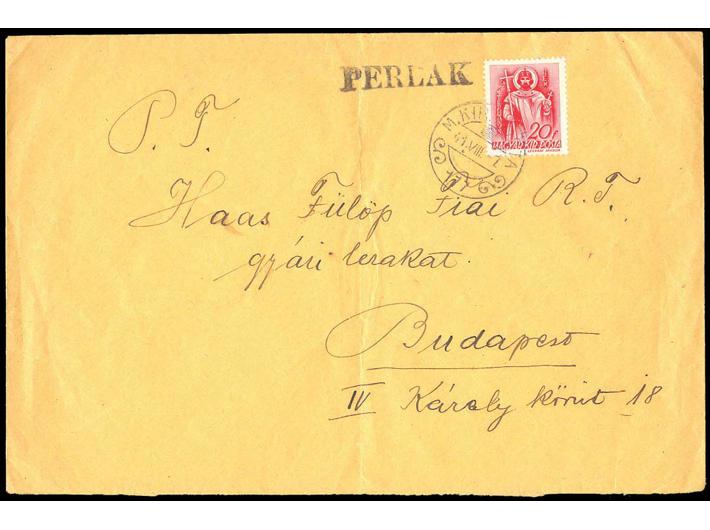 PERLAK
20f
MAGYAR KIR. POSTA
P. T.
Haas Fülöp Fiai R. T.
gyári lerakat.
Budapest
IV Károly körut 18